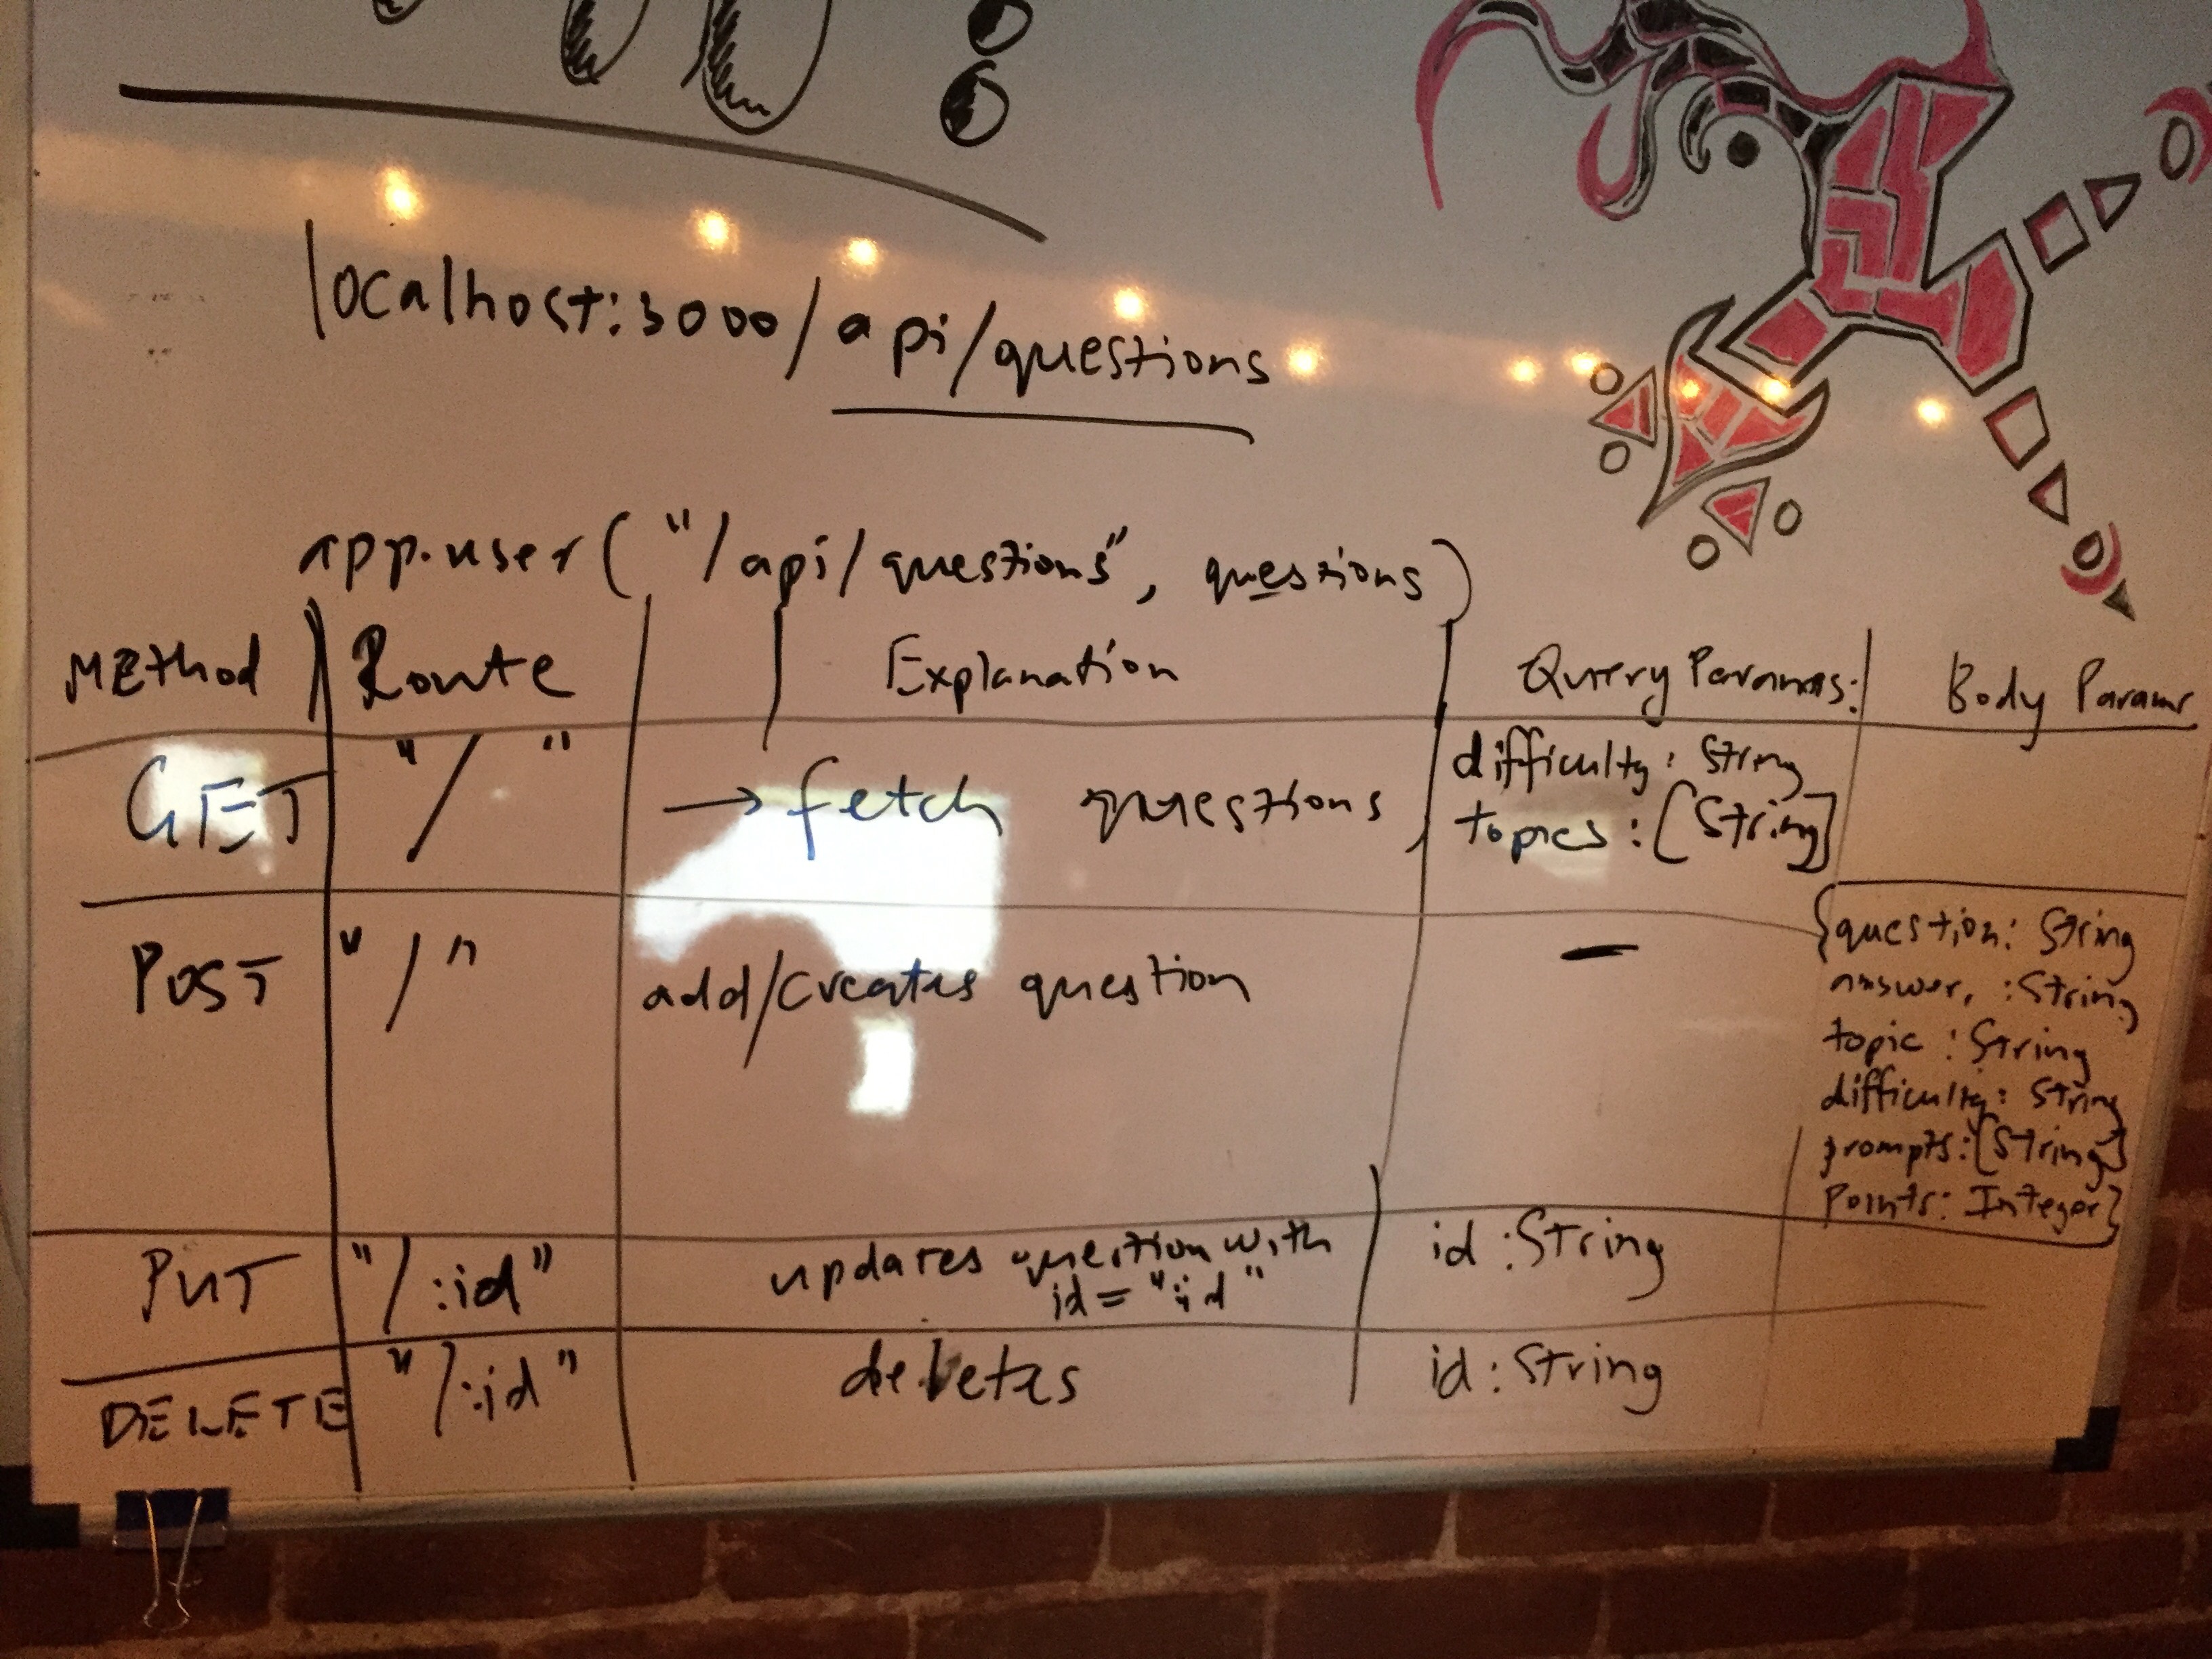 localhost:3000/api/questions
app.user("/api/questions", questions)
Method Route Explanation Query Params: Body Params
GET "/" → fetch questions, difficulty: String
topics: [String]
POST "/" add/creates question -
{question: String
answer, : String
topic: String
difficulty: String
prompts: [String]
Points: Integer}
PUT "/:id" updates question with id: String
id = ":id"
DELETE "/:id" deletes id: String